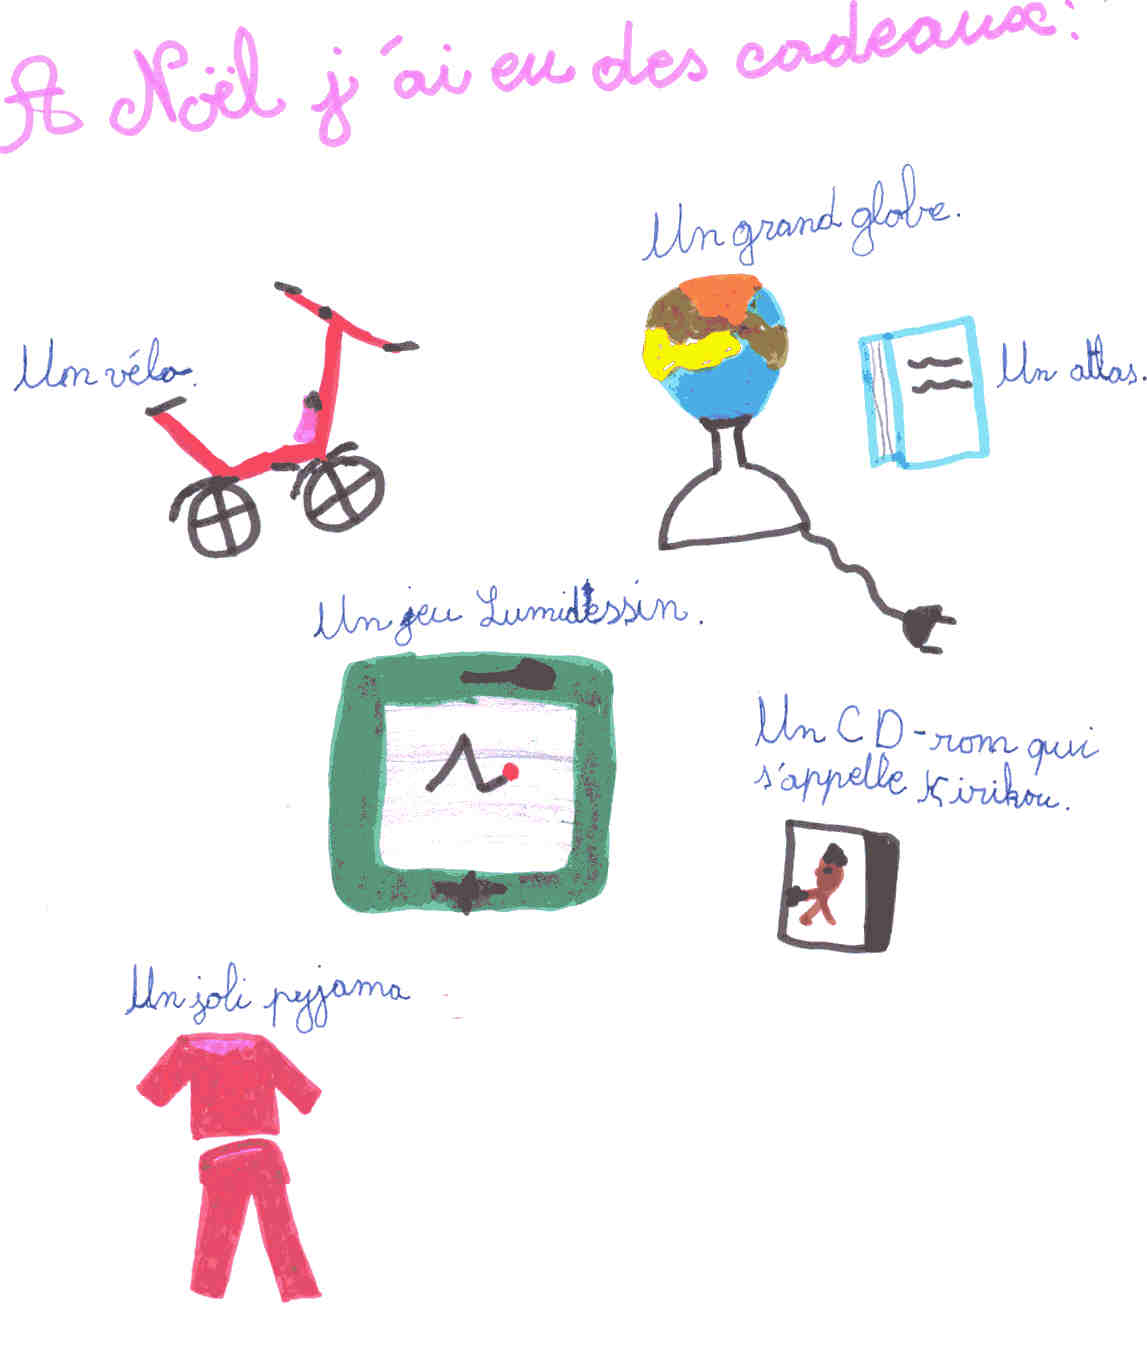 A Noël j'ai eu des cadeaux:
Un grand globe.
Un vélo.
Un atlas.
Un jeu Lumidessin.
Un CD-rom qui
s'appelle Kirikou.
Un joli pyjama